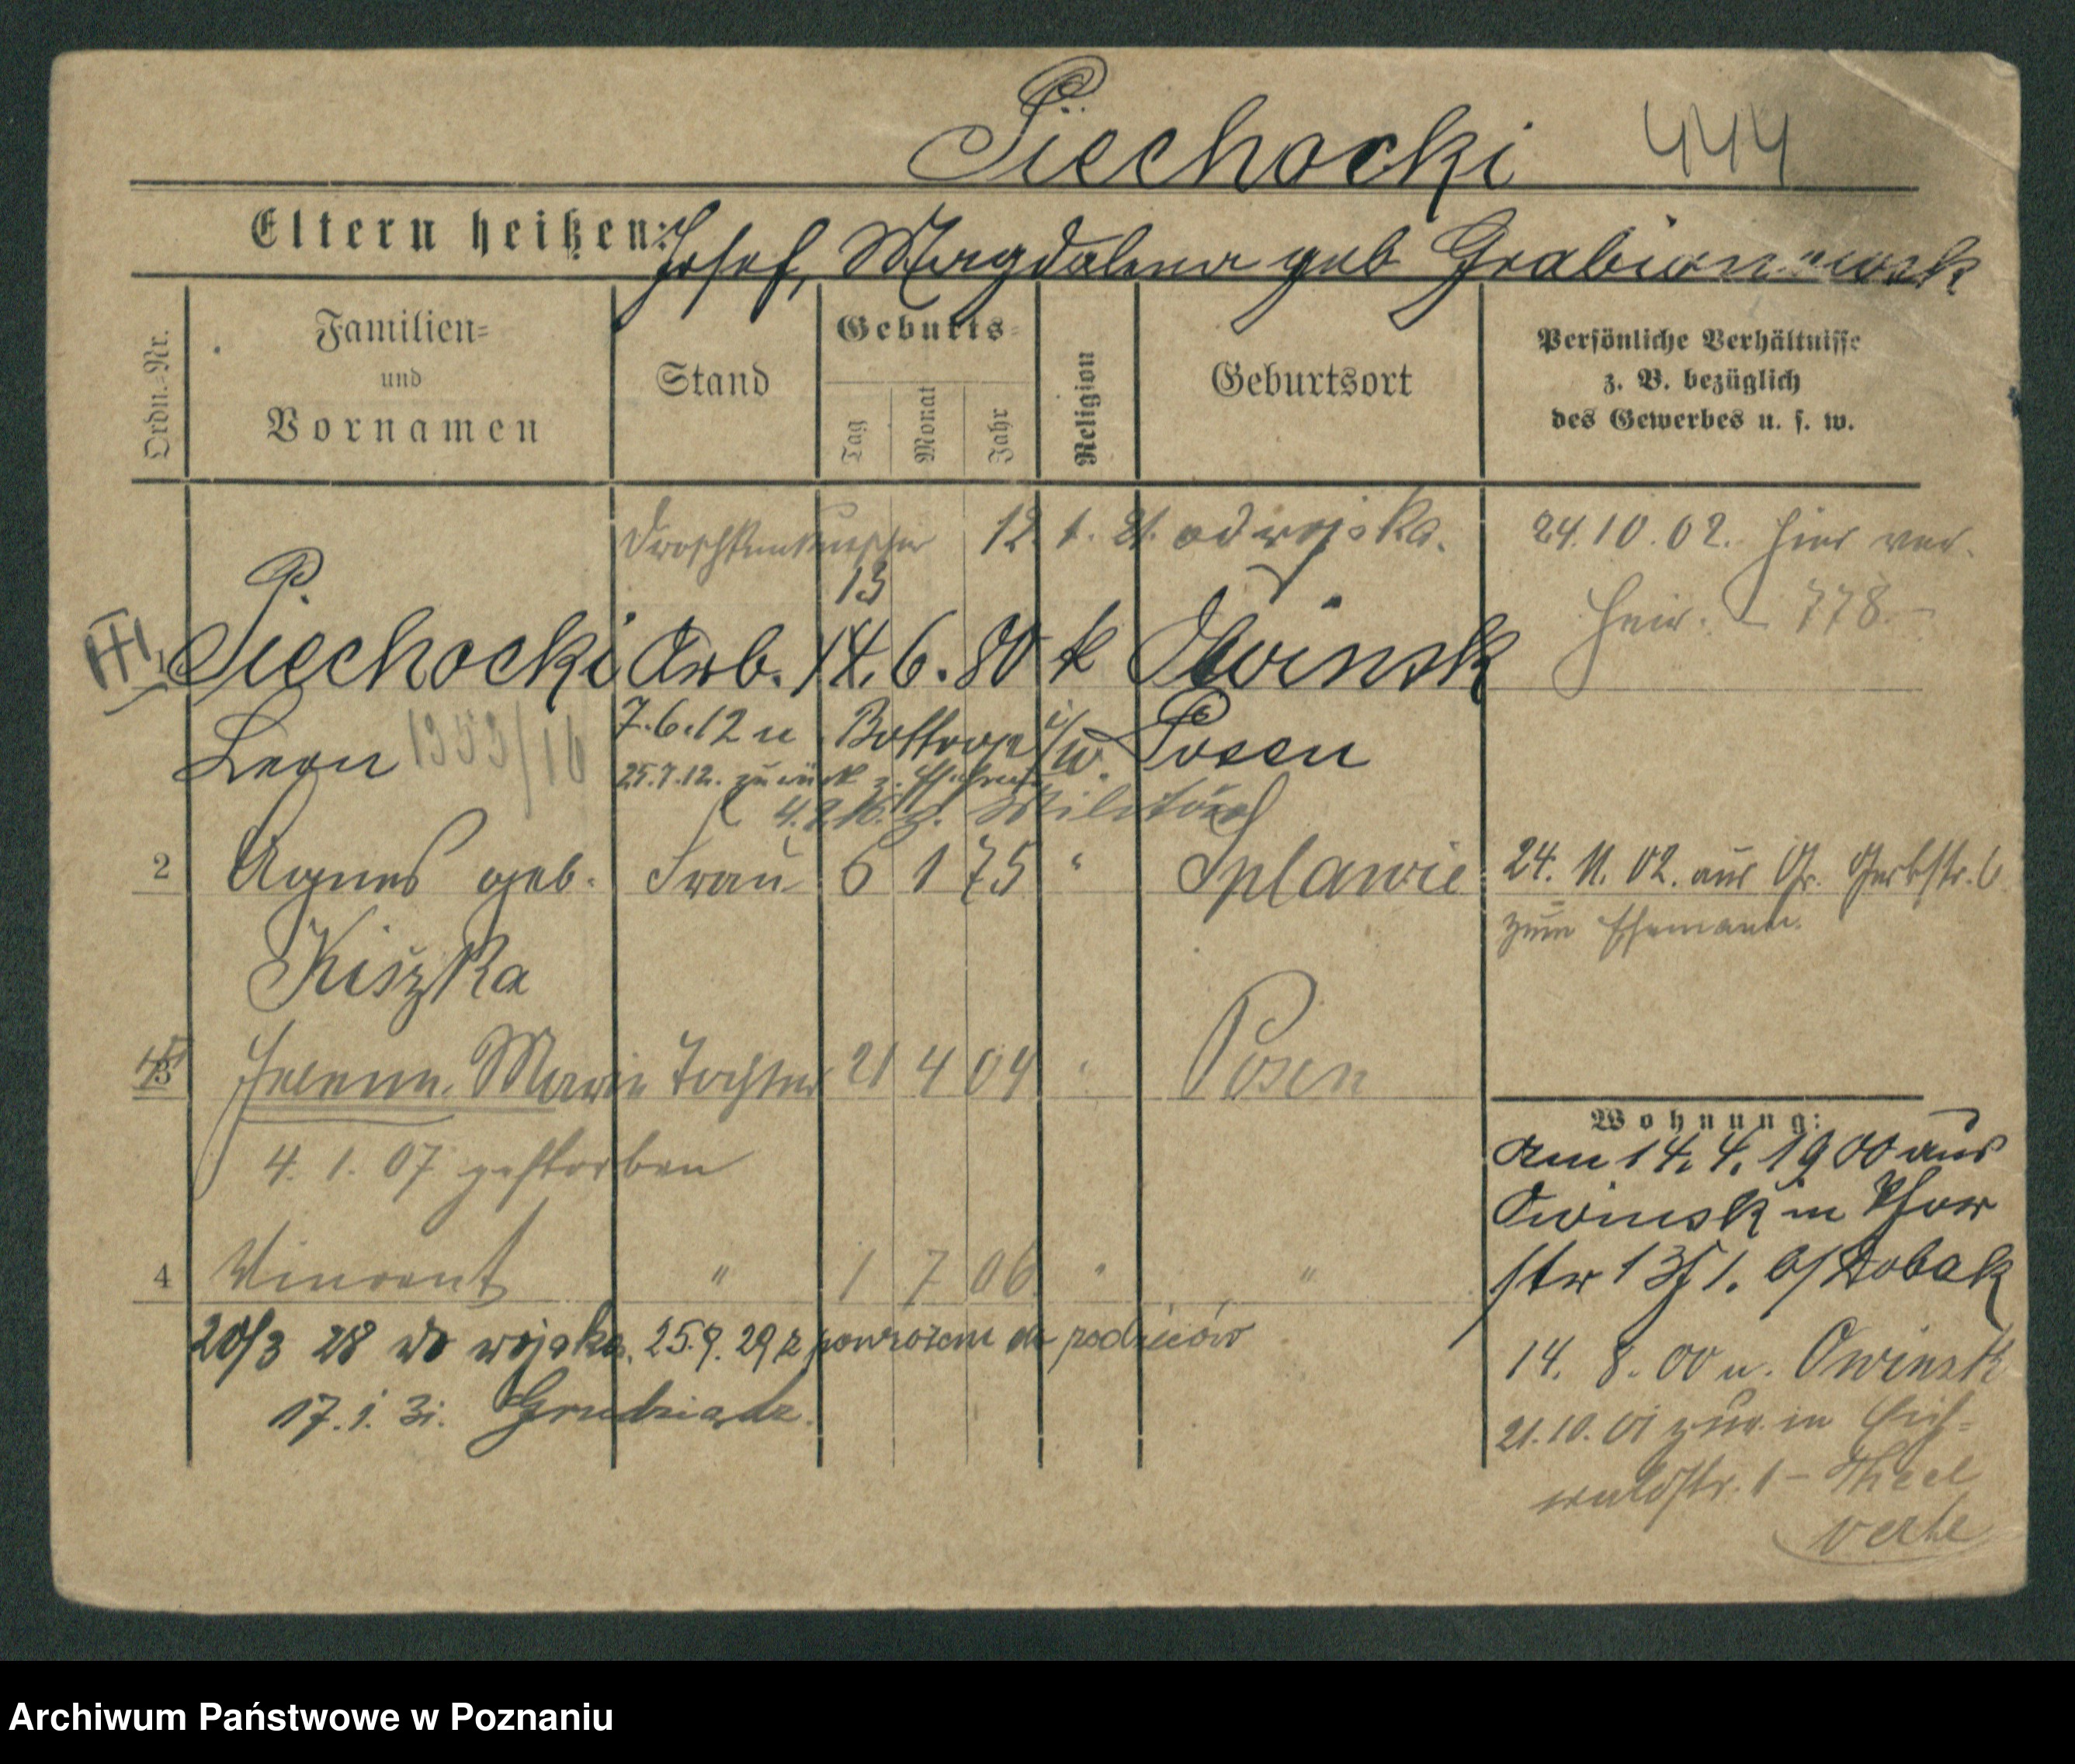 Piechocki 444
Eltern heißen: Josef, Magdalena geb
Ordn.-Nr.
Familien-
und
Vornamen
Stand
Geburts-
Tag
Monat
Jahr
Religion
Geburtsort
Persönliche Verhältnisse
z. B. bezüglich
des Gewerbes u. s. w.
Droschkenkutscher 12. 1. 21. od wojska. 24.10.02. hier ver-
13 heir. 778.
1 Piechocki Arb. 14. 6. 80 k Owinsk
Leon 1353/16 7.6.12 n Bottrop i/W. Posen
25.7.12. zurück z. Ehefrau
4. z. Militär
2 Agnes geb. Frau 6 1 75 " Splawie 24. 11. 02. aus Gr. Gerbstr. 6
zum Ehemann.
Kiszka
3 Helene Marie Tochter 21 4 04 " Posen
4. 1. 07 gestorben
4 Vincent " 1 7 06 " "
20/3 28 do wojska. 25.9. 29 z powrotem do rodziców
17. 1. 31. Grudziądz.
Wohnung:
Am 14. 4. 1900 aus
Owinsk in Thor
str 13 I. b/
14. 8. 00 n. Owinsk
21.10.01 zur. in Eich-
waldstr. 1 -